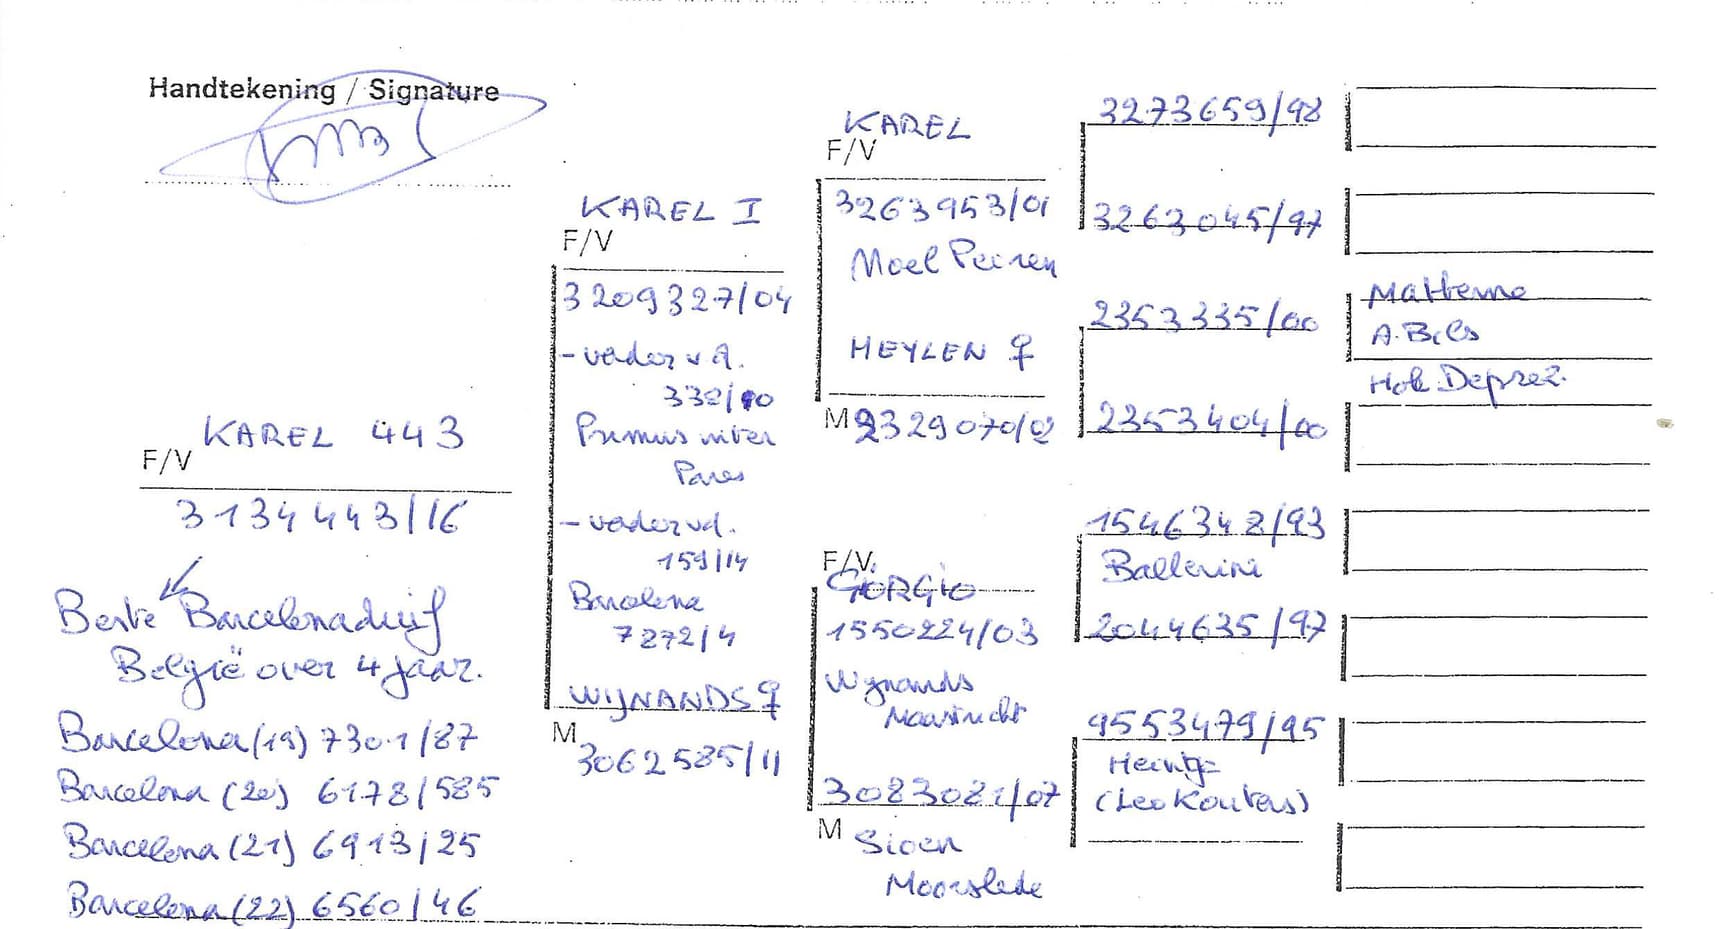 Handtekening / Signature
KAREL 443
F/V
3134443/16
Beste Barcelonaduif
België over 4 jaar.
Barcelona (19) 7301/87
Barcelona (20) 6178/585
Barcelona (21) 6913/25
Barcelona (22) 6560/46
KAREL I
F/V
3209327/04
- vader v d.
338/10
Primus inter
Pares
- vader vd.
159/14
Barcelona
7272/4
WIJNANDS ♀
M
3062585/11
KAREL
F/V
3263953/01
Noel Peiren
HEYLEN ♀
M 2329070/02
F/V
GIORGIO
1550224/03
Wijnands
Maastricht
3083081/07
M
Sioen
Moorslede
3273659/98
3263045/97
2353335/00
2353404/00
1546348/93
Ballerini
2044635/97
9553479/95
Heintje
(Leo Kouters)
Matterne
A. Bils
Hok Deprez